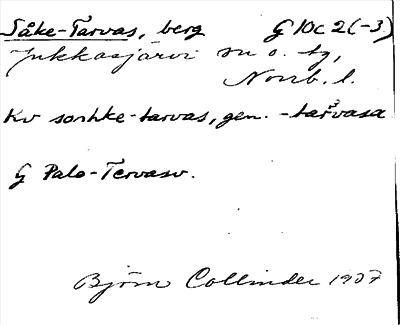 Såke-Tarvas, berg G 10c 2(-3)
Jukkasjärvi sn o. tg,
Norrb. l.
Kv sonhke-tarvas, gen. -tarvasa
G Palo-Tervasv.
Björn Collinder 1937